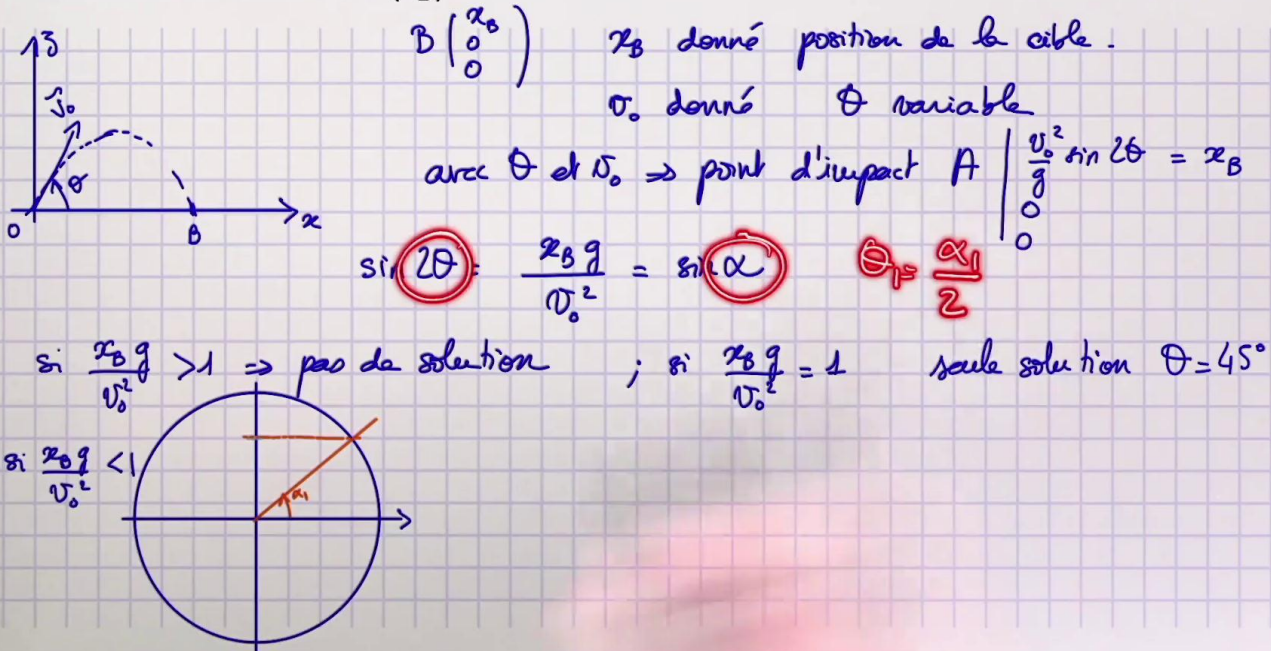 B (x_B 0 0) x_B donné position de la cible.
z
v⃗₀
θ
O B x
v₀ donné θ variable
avec θ et v₀ ⇒ point d'impact A | v₀²/g sin 2θ = x_B
0
0
sin 2θ = x_B g / v₀² = sin α θ₁ = α₁/2
si x_B g / v₀² > 1 ⇒ pas de solution ; si x_B g / v₀² = 1 seule solution θ = 45°
si x_B g / v₀² < 1
α₁